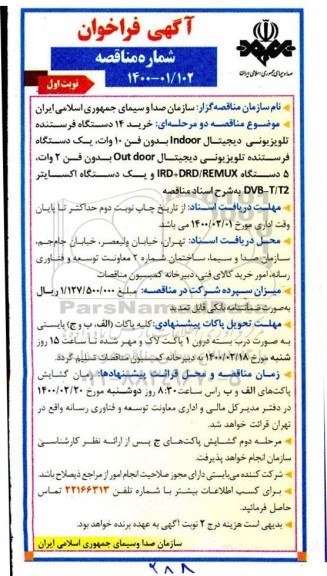 آگهی فراخوان
شماره مناقصه
۱۴۰۰-۰۱/۱۰۲
صدا و سیمای جمهوری اسلامی ایران
نوبت اول
نام سازمان مناقصه‌گزار: سازمان صدا و سیمای جمهوری اسلامی ایران
موضوع مناقصه دو مرحله‌ای: خرید ۱۴ دستگاه فرستنده
تلویزیونی دیجیتال Indoor بدون فن ۱۰ وات، یک دستگاه
فرستنده تلویزیونی دیجیتال Out door بدون فن ۲ وات،
۵ دستگاه IRD+DRD/REMUX و یک دستگاه اکسایتر
DVB-T/T2 به‌شرح اسناد مناقصه
مهلت دریافت اسناد: از تاریخ چاپ نوبت دوم حداکثر تا پایان
وقت اداری مورخ ۱۴۰۰/۰۲/۰۱ می باشد.
محل دریافت اسناد: تهران، خیابان ولیعصر، خیابان جام‌جم،
سازمان صدا و سیما، ساختمان شماره ۲ معاونت توسعه و فناوری
رسانه، امور خرید کالای فنی، دبیرخانه کمیسیون مناقصات
میزان سپرده شرکت در مناقصه: مبلغ ۱/۱۳۷/۵۰۰/۰۰۰ ریال
به‌صورت ضمانتنامه بانکی قابل تمدید
مهلت تحویل پاکات پیشنهادی: کلیه پاکات (الف، ب و ج) بایستی
به صورت درب بسته درون ۱ پاکت لاک و مهر شده تا ساعت ۱۵ روز
شنبه مورخ ۱۴۰۰/۰۲/۱۸ به دبیرخانه کمیسیون مناقصات تسلیم گردد.
زمان مناقصه و محل قرائت پیشنهادها: زمان گشایش
پاکت‌های الف و ب راس ساعت ۸:۳۰ روز دوشنبه مورخ ۱۴۰۰/۰۲/۲۰
در دفتر مدیر کل مالی و اداری معاونت توسعه و فناوری رسانه واقع در
تهران قرائت خواهد شد.
مرحله دوم گشایش پاکت‌های ج پس از ارائه نظر کارشناسی
سازمان انجام خواهد پذیرفت.
شرکت کننده می‌بایستی دارای مجوز صلاحیت انجام امور از مراجع ذیصلاح باشد.
برای کسب اطلاعات بیشتر با شماره تلفن ۲۲۱۶۶۳۱۳ تماس
حاصل فرمائید.
بدیهی است هزینه درج ۲ نوبت آگهی به عهده برنده خواهد بود.
سازمان صدا و سیمای جمهوری اسلامی ایران